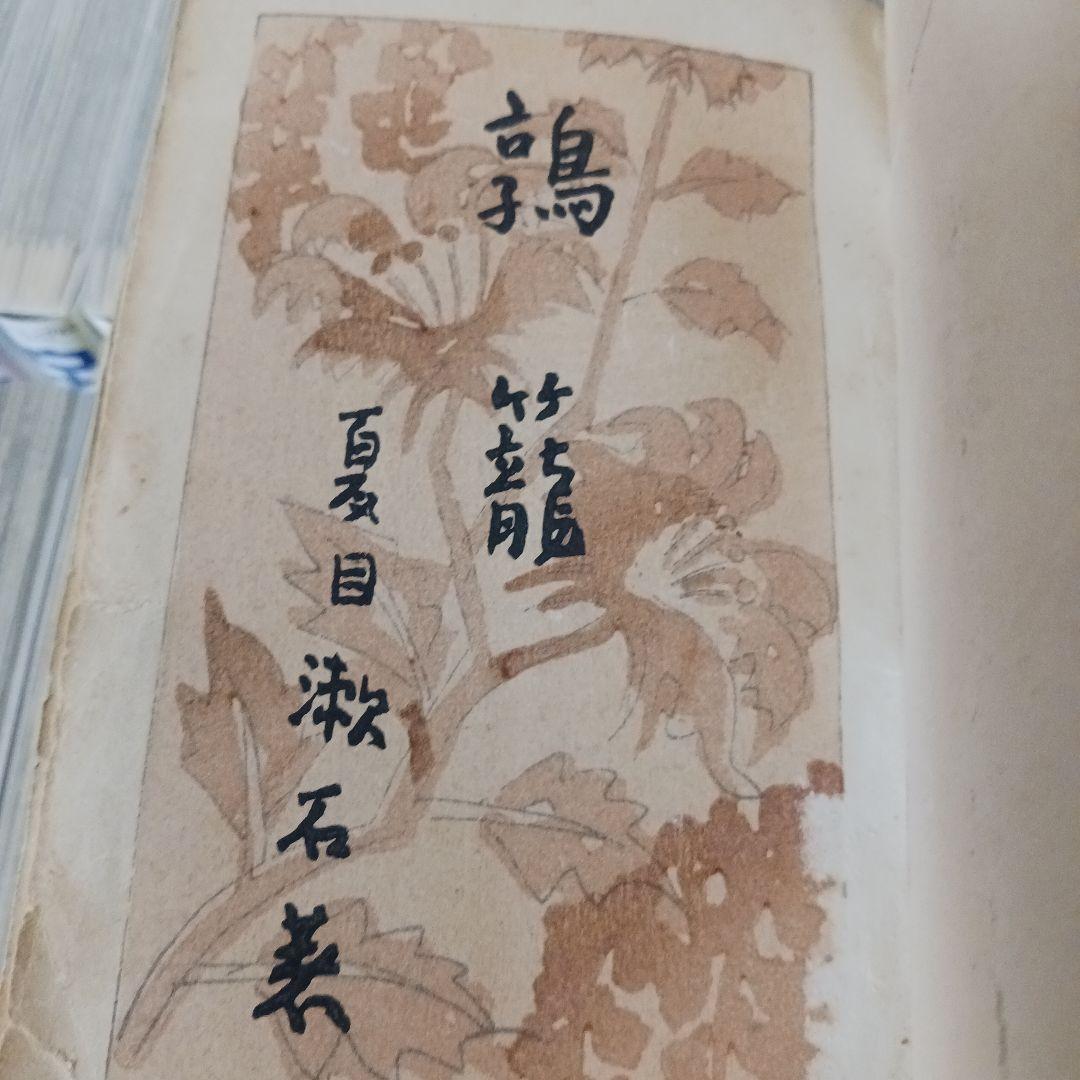 鶉籠
夏目漱石著